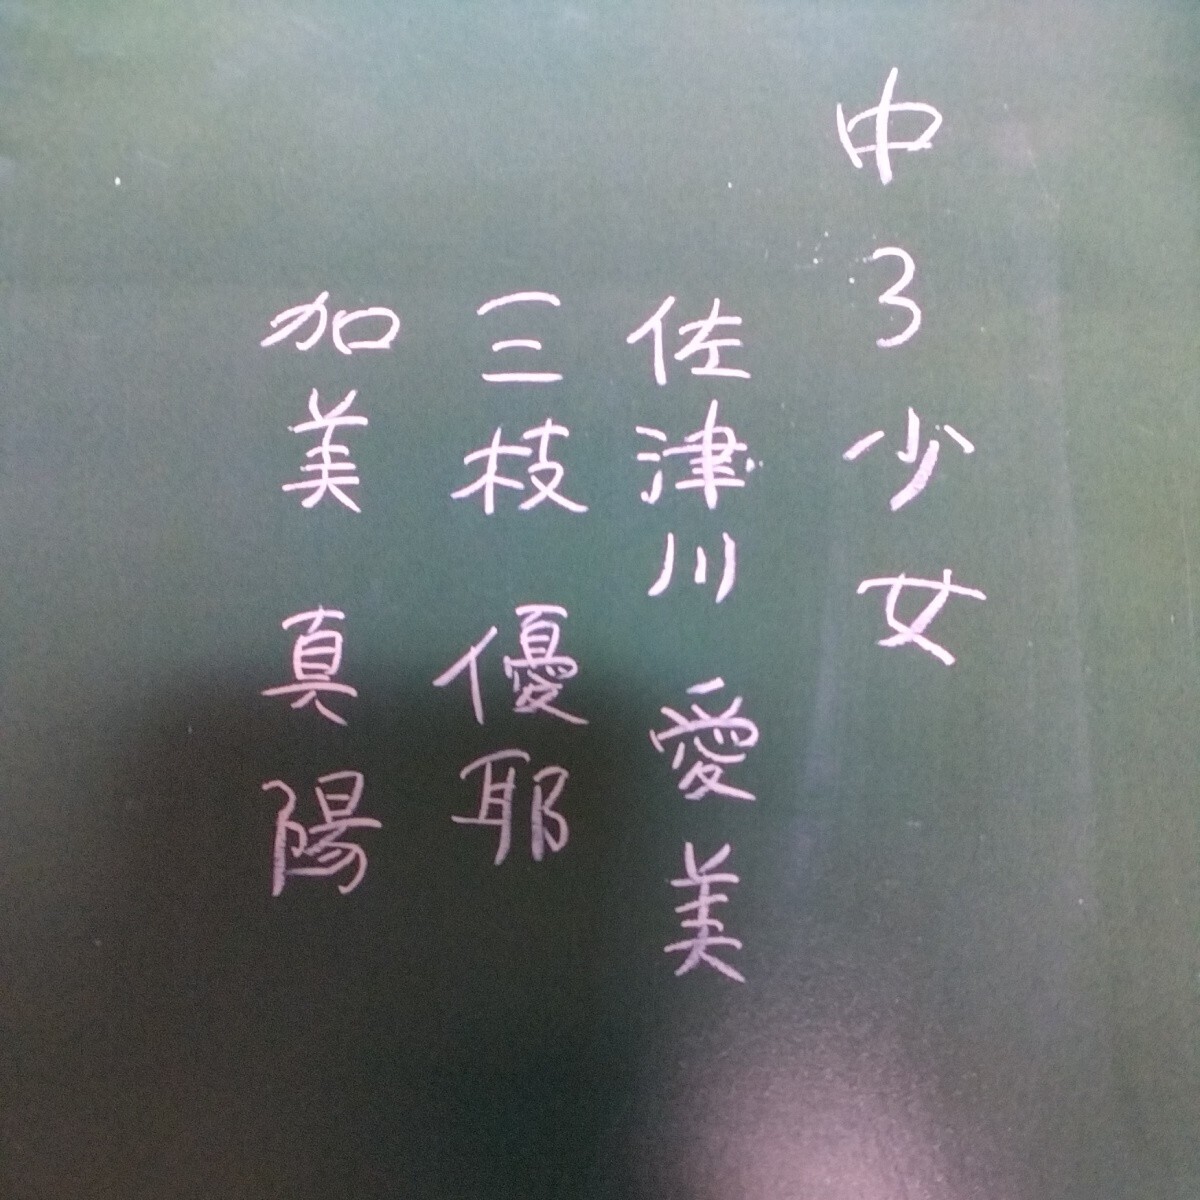 中3少女
佐津川 愛美
三枝 優耶
加美 真陽